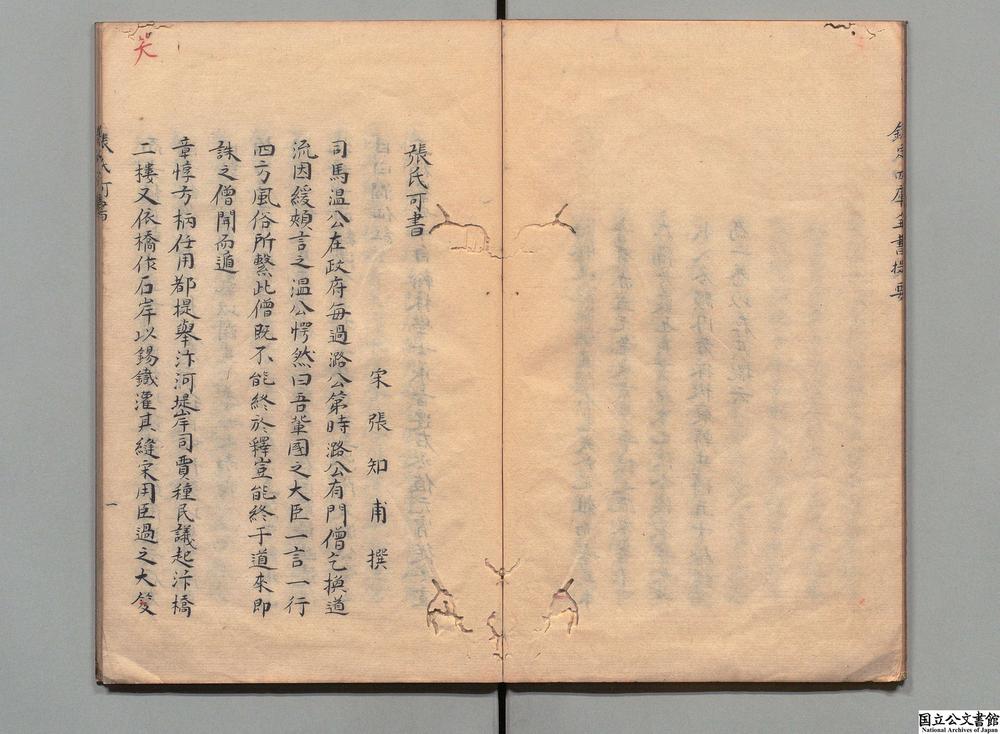 欽定四庫全書提要
張氏可書
宋張知甫撰
司馬溫公在政府每過潞公第時潞公有門僧乞換道
流因緩頰言之溫公愕然曰吾輩國之大臣一言一行
四方風俗所繫此僧既不能終於釋豈能終于道來即
誅之僧聞而遁
章惇方柄任用都提舉汴河堤岸司賈種民議起汴橋
二樓又依橋作石岸以錫鐵灌其縫宋用臣過之大笑
張氏可書
一
国立公文書館
National Archives of Japan